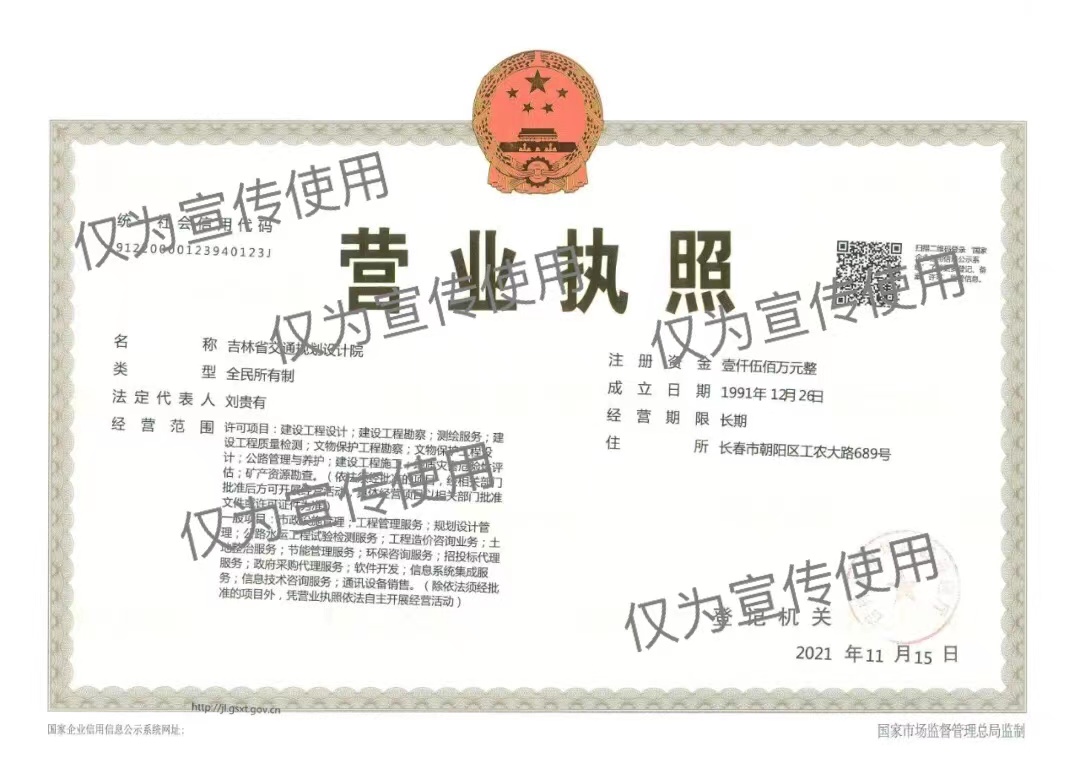 统一社会信用代码
91220000123940123J
营业执照
扫描二维码登录"国家
名称 吉林省交通规划设计院
类型 全民所有制
法定代表人 刘贵有
经营范围 许可项目:建设工程设计;建设工程勘察;测绘服务;建
设工程质量检测;文物保护工程勘察;文物保护工程设
计;公路管理与养护;建设工程施工;地质灾害危险性评
估;矿产资源勘查。(依法须经批准的项目,经相关部门
批准后方可开展经营活动,具体经营项目以相关部门批准
文件或许可证件为准)
一般项目:市政设施管理;工程管理服务;规划设计管
理;公路水运工程试验检测服务;工程造价咨询业务;土
地整治服务;节能管理服务;环保咨询服务;招投标代理
服务;政府采购代理服务;软件开发;信息系统集成服
务;信息技术咨询服务;通讯设备销售。(除依法须经批
准的项目外,凭营业执照依法自主开展经营活动)
注册资金 壹仟伍佰万元整
成立日期 1991年12月26日
经营期限 长期
住所 长春市朝阳区工农大路689号
登记机关
2021年11月15日
http://jl.gsxt.gov.cn
国家企业信用信息公示系统网址:
国家市场监督管理总局监制
仅为宣传使用
仅为宣传使用
仅为宣传使用
仅为宣传使用
仅为宣传使用